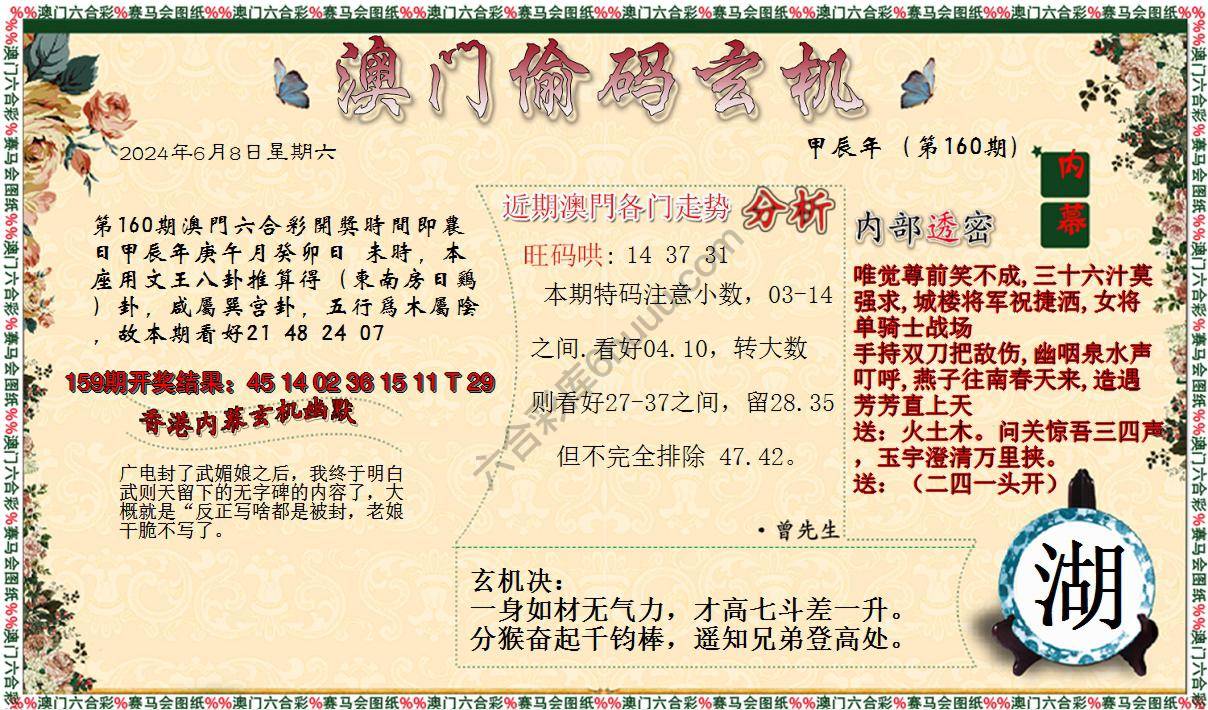 %%澳门六合彩%赛马会图纸%%澳门六合彩%赛马会图纸%%澳门六合彩%赛马会图纸%%澳门六合彩%赛马会图纸%%澳门六合彩%赛马会图纸%%澳门六合彩%赛马会图纸%%
澳门偷码玄机
2024年6月8日星期六
甲辰年（第160期）
内
幕
第160期澳門六合彩開獎時間即農
日甲辰年庚午月癸卯日 未時，本
座用文王八卦推算得（東南房日鷄
）卦，咸屬巽宫卦，五行爲木屬陰
，故本期看好21 48 24 07
159期开奖结果：45 14 02 36 15 11 T 29
香港内幕玄机幽默
广电封了武媚娘之后，我终于明白
武则天留下的无字碑的内容了，大
概就是“反正写啥都是被封，老娘
干脆不写了。
近期澳門各门走势 分析
旺码哄: 14 37 31
本期特码注意小数，03-14
之间.看好04.10，转大数
则看好27-37之间，留28.35
但不完全排除 47.42。
·曾先生
内部透密
唯觉尊前笑不成,三十六汁莫
强求,城楼将军祝捷洒,女将
单骑士战场
手持双刀把敌伤,幽咽泉水声
叮呼,燕子往南春天来,造遇
芳芳直上天
送：火土木。问关惊吾三四声
，玉宇澄清万里挟。
送：（二四一头开）
玄机决：
一身如材无气力，才高七斗差一升。
分猴奋起千钧棒，遥知兄弟登高处。
湖